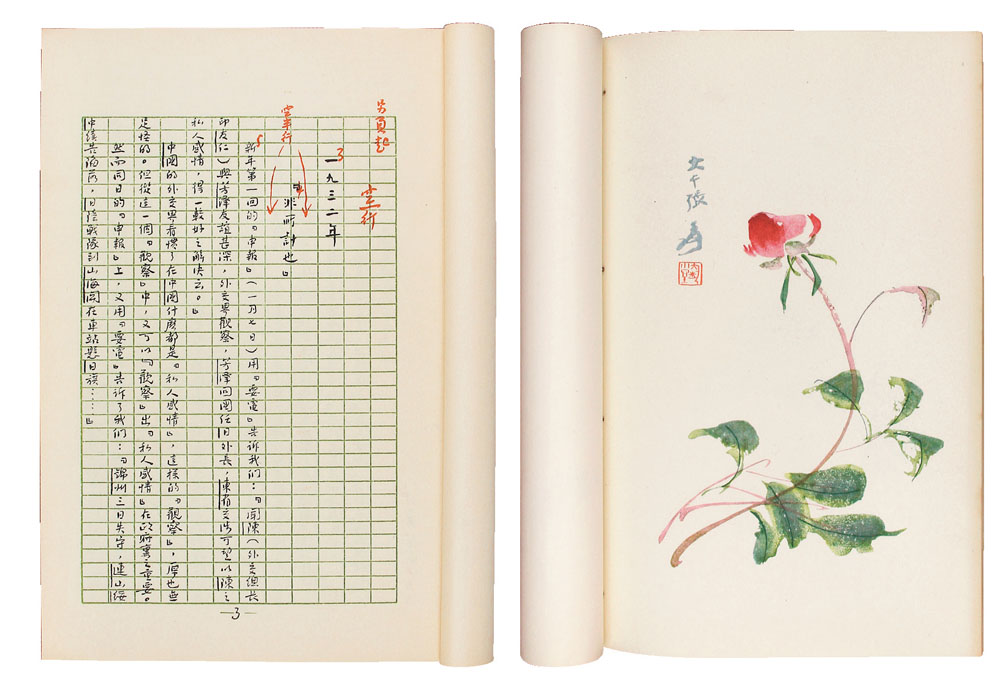 另頁起
空行
3
一九三二年
空半行
「非所計也」
5
新年第一回的「申報」(一月七日)用「要電」告訴我們:「聞陳(外交總長
印友仁)與芳澤友誼甚深,外交界觀察,芳澤回國任日外長,東省交涉可望以陳之
私人感情,得一較好之解決云。」
中國的外交界看慣了在中國什麼都是「私人感情」,這樣的「觀察」,原也無
足怪的。但從這一個「觀察」中,又可以「觀察」出「私人感情」在政府裏之重要。
然而同日的「申報」上,又用「要電」告訴了我們:「錦州三日失守,連山綏
中續告陷落,日陸戰隊到山海關在車站懸日旗……」
—3—
大千張爰